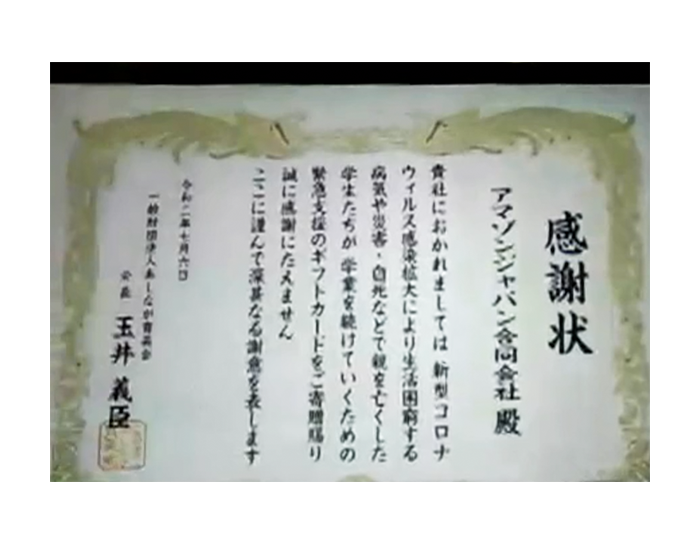 感謝状
アマゾンジャパン合同会社 殿
貴社におかれましては 新型コロナ
ウィルス感染拡大により生活困窮する
病気や災害・自死などで親を亡くした
学生たちが 学業を続けていくための
緊急支援のギフトカードをご寄贈賜り
誠に感謝にたえません
ここに謹んで深甚なる謝意を表します
令和二年七月六日
一般財団法人あしなが育英会
会長 玉井 義臣